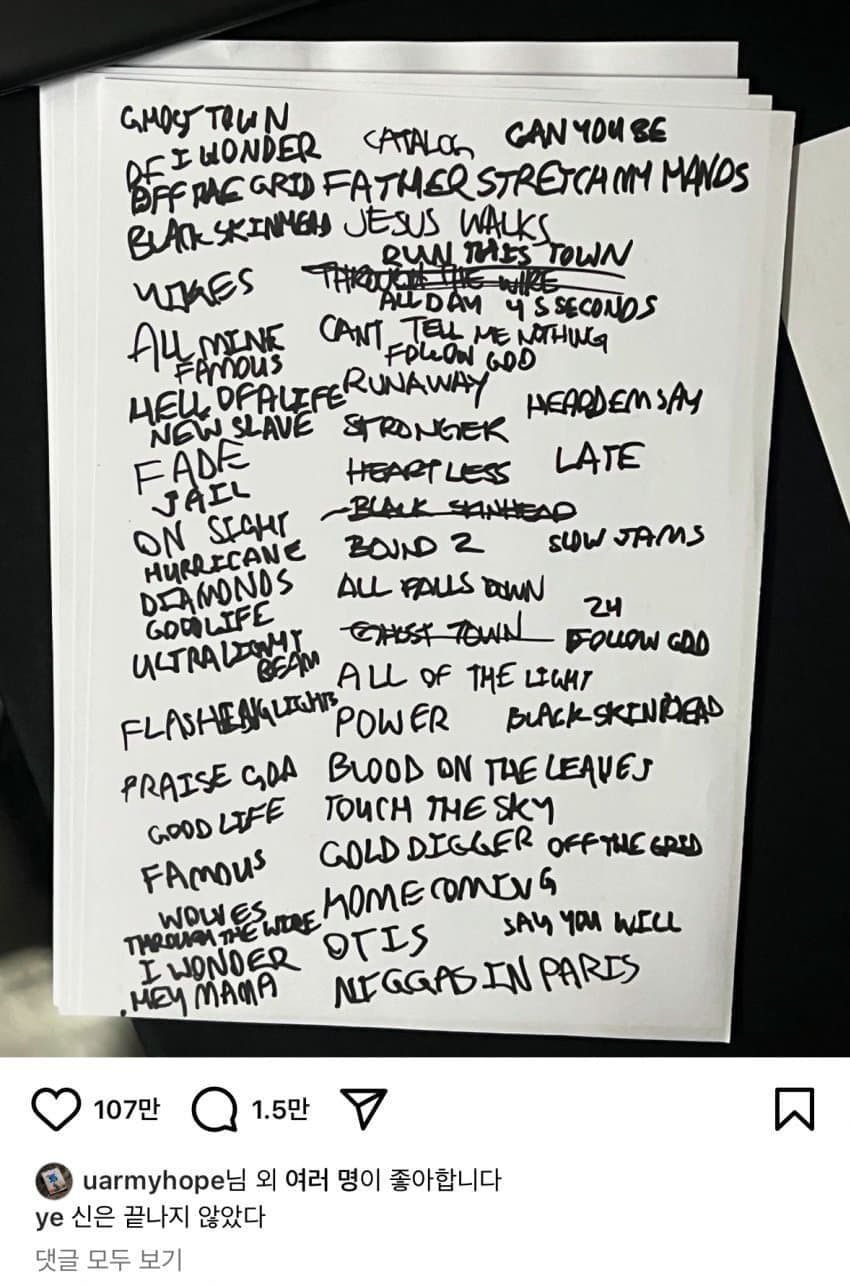 GHOST TOWN
OF I WONDER CATALOG CAN YOU BE
OFF THE GRID FATHER STRETCH MY HANDS
BLACK SKINHEAD JESUS WALKS
RUN THIS TOWN
YIKES THROUGH THE WIRE
ALL DAY 4 5 SECONDS
ALL MINE CANT TELL ME NOTHING
FAMOUS FOLLOW GOD
HELL OF A LIFE RUNAWAY HEARD EM SAY
NEW SLAVE STRONGER
FADE HEARTLESS LATE
JAIL
ON SIGHT BLACK SKINHEAD
HURRICANE BOUND 2 SLOW JAMS
DIAMONDS ALL FALLS DOWN
GOOD LIFE 24
ULTRALIGHT BEAM GHOST TOWN FOLLOW GOD
ALL OF THE LIGHT
FLASHING LIGHTS POWER BLACK SKINHEAD
PRAISE GOD BLOOD ON THE LEAVES
GOOD LIFE TOUCH THE SKY
FAMOUS GOLD DIGGER OFF THE GRID
WOLVES HOMECOMING
THROUGH THE WIRE SAY YOU WILL
I WONDER OTIS
HEY MAMA NIGGAS IN PARIS
107만 1.5만
uarmyhope님 외 여러 명이 좋아합니다
ye 신은 끝나지 않았다
댓글 모두 보기